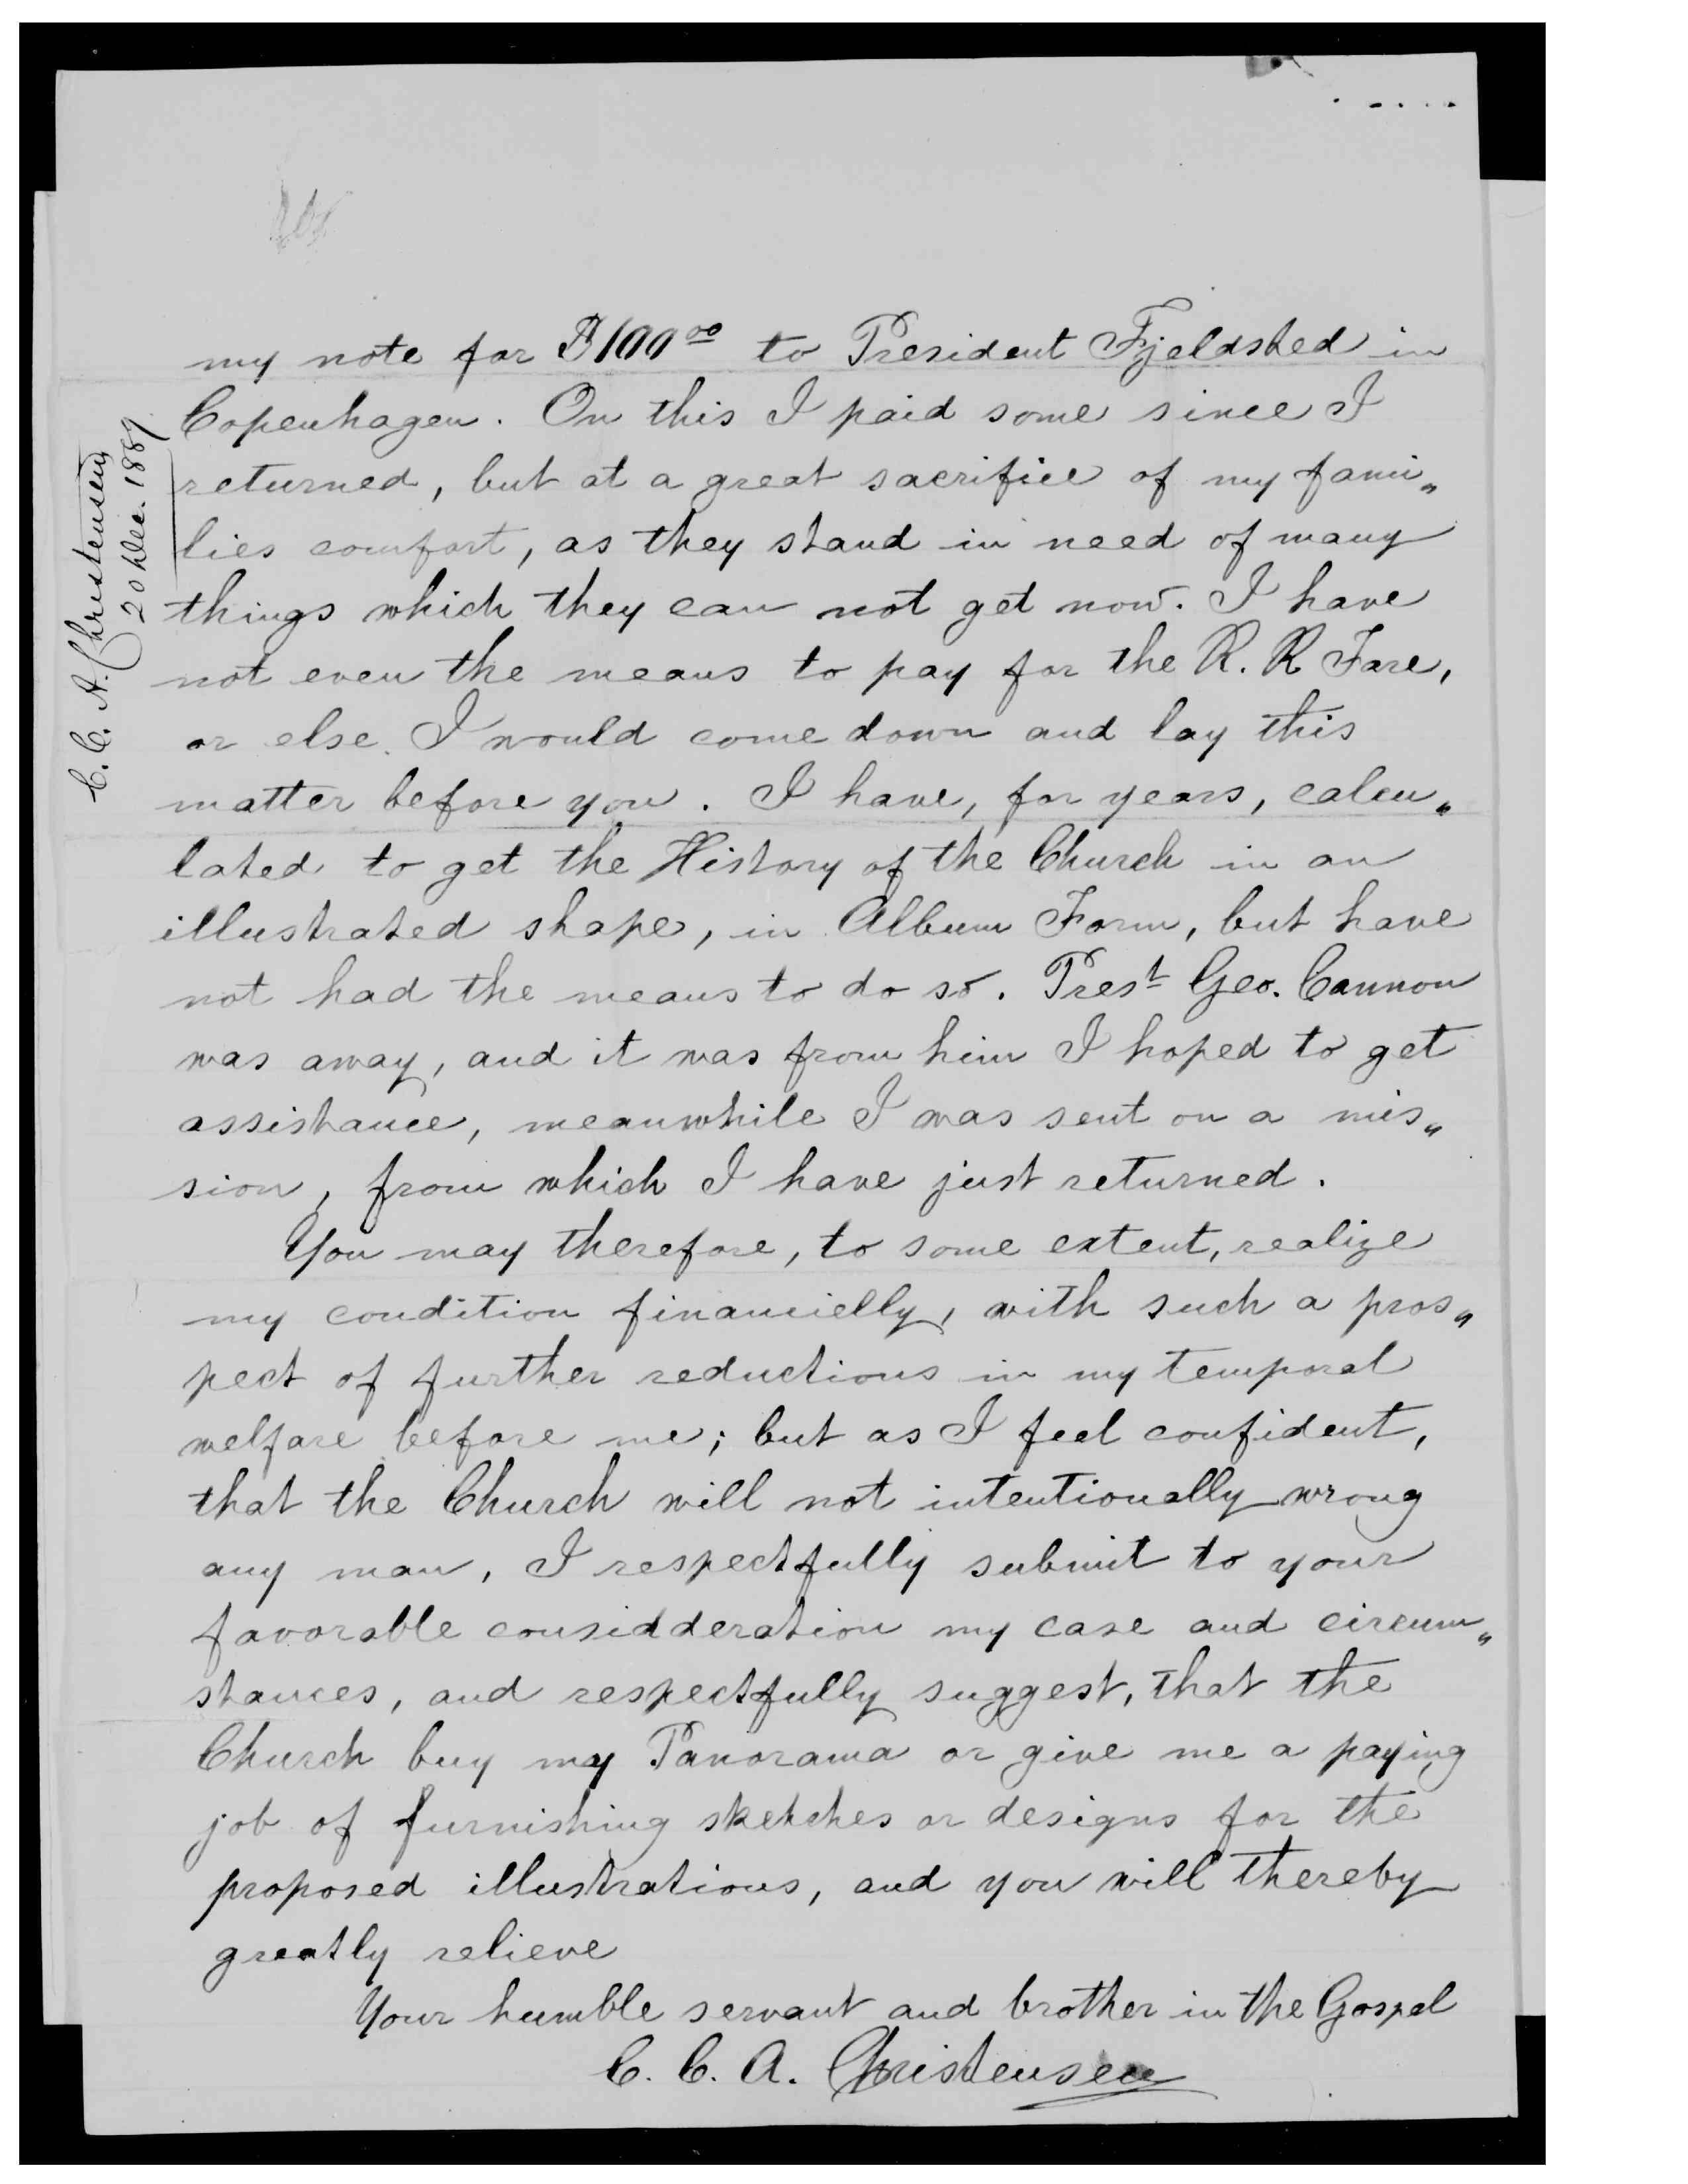 my note for $100 00 to President Fjeldsted in
Copenhagen. On this I paid some since I
returned, but at a great sacrifice of my fami„
lies comfort, as they stand in need of many
things which they can not get now. I have
not even the means to pay for the R. R Fare,
or else I would come down and lay this
matter before you. I have, for years, calcu„
lated to get the History of the Church in an
illustrated shape, in Album Form, but have
not had the means to do so. Prest Geo. Cannon
was away, and it was from him I hoped to get
assistance, meanwhile I was sent on a mis„
sion, from which I have just returned.
You may therefore, to some extent, realize
my condition financielly, with such a pros„
pect of further reductions in my temporal
welfare before me; but as I feel confident,
that the Church will not intentionally wrong
any man, I respectfully submit to your
favorable considderation my case and circum„
stances, and respectfully suggest, that the
Church buy my Panorama or give me a paying
job of furnishing sketches or designs for the
proposed illustrations, and you will thereby
greatly relieve
Your humble servant and brother in the Gospel
C. C. A. Christensen
C. C. A. Christensen
20 Dec. 1889